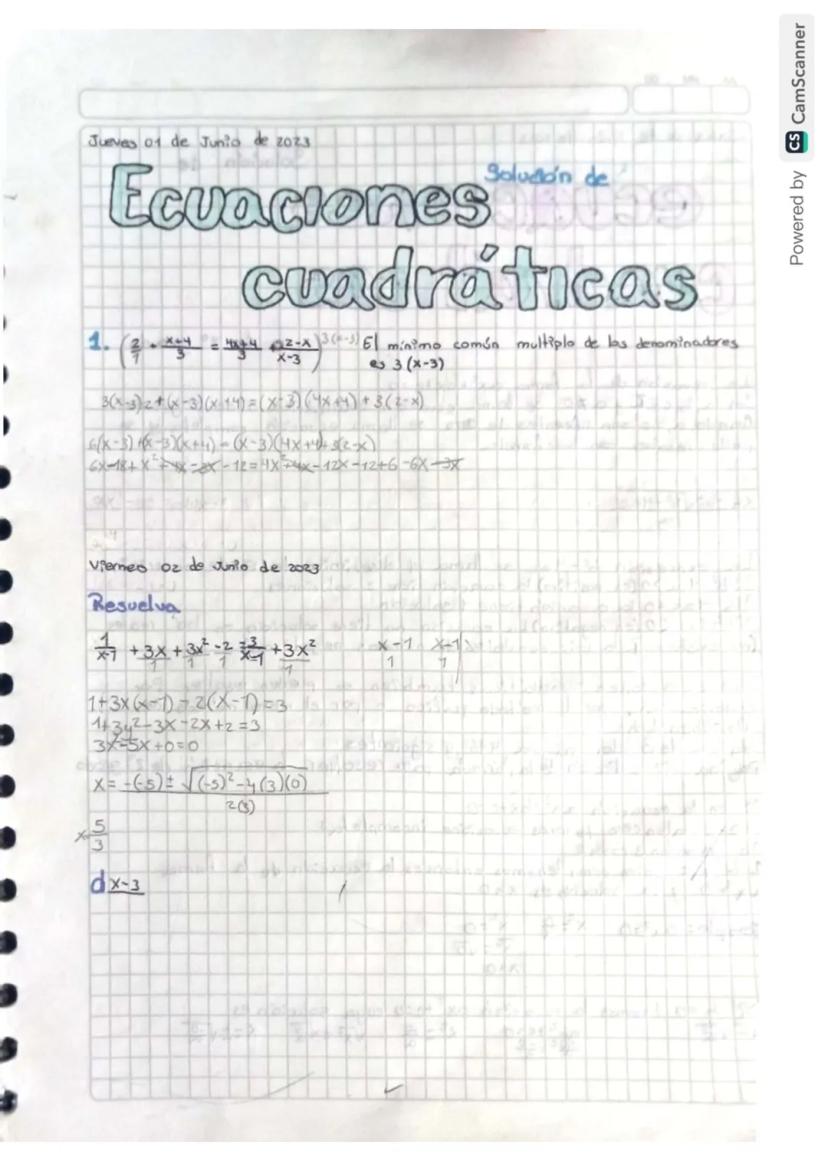 Jueves 01 de Junio de 2023
Solución de
Ecuaciones
cuadráticas
1. (2/1 + x+4/3 = 4x+4/3 + 2-x/x-3) 3(x-3) El mínimo común multiplo de los denominadores
es 3(x-3)
3(x-3)2+(x-3)(x+4)=(x-3)(4x+4)+3(2-x)
6(x-3)+(x-3)(x+4)=(x-3)(4x+4)+3(2-x)
6x-18+x²+4x-3x-12=4x²+4x-12x-12+6-6x-3x
Viernes 02 de Junio de 2023
Resuelva
1/x-1 + 3x/1 + 3x²/1 - 2/1 = 3/x-1 + 3x²/1 x-1/1 x-1/1
1+3x(x-1)-2(x-1)=3
1+3x²-3x-2x+2=3
3x-5x+0=0
x= -(-5)± √(-5)²-4(3)(0) / 2(3)
x=5/3
d x-3
Powered by CS CamScanner